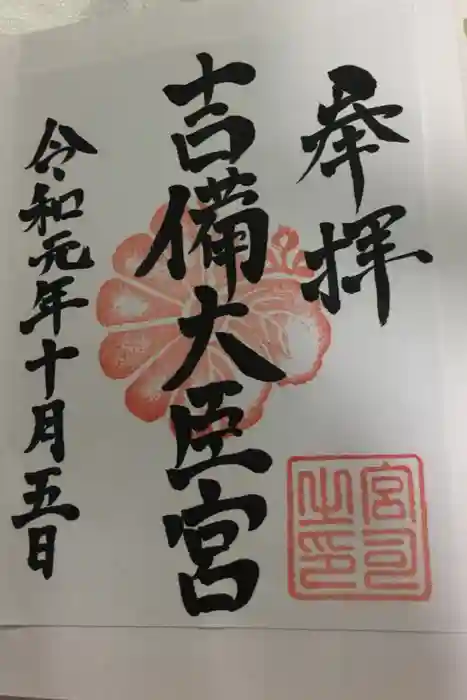 奉拝
吉備大臣宮
令和元年十月五日
宮司
之印